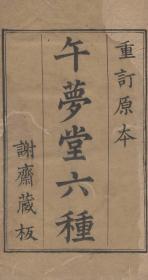 重訂原本
午夢堂六種
謝齋藏板